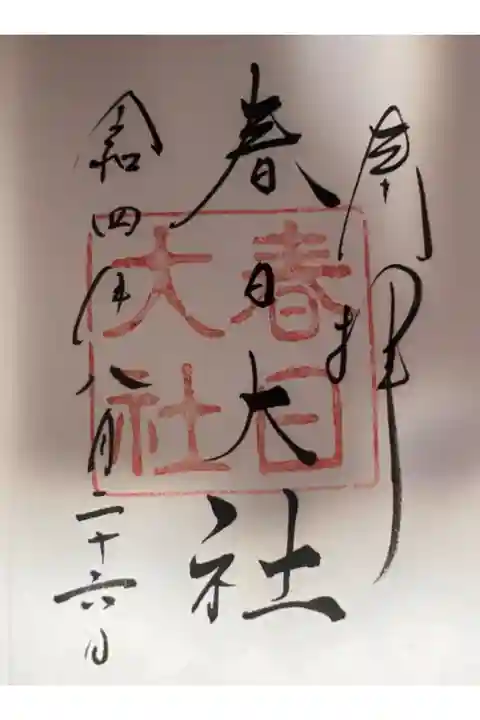 奉拝
春日大社
令和四年八月二十六日
春日
大社